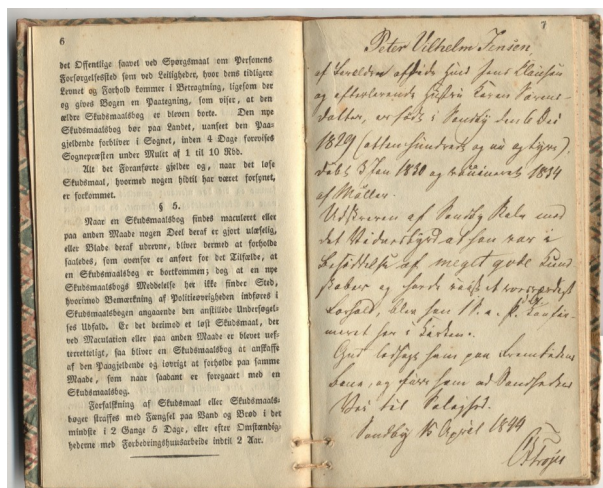 6
det Offentlige saavel ved Spørgsmaal om Personens
Forsørgelsessted som ved Leiligheder, hvor dens tidligere
Levnet og Forhold kommer i Betragtning, ligesom der
og gives Bogen en Paategning, som viser, at den
ældre Skudsmaalsbog er bleven borte. Den nye
Skudsmaalsbog bør paa Landet, uanseet den Paa-
gjeldende forbliver i Sognet, inden 4 Dage forevises
Sognepræsten under Mulct af 1 til 10 Rbd.
Alt det Foranførte gjelder og, naar det løse
Skudsmaal, hvormed nogen hidtil har været forsynet,
er forkommet.
§ 5.
Naar en Skudsmaalsbog findes maculeret eller
paa anden Maade nogen Deel deraf er gjort ulæselig,
eller Blade deraf udrevne, bliver dermed at forholde
saaledes, som ovenfor er anført for det Tilfælde, at
en Skudsmaalsbog er bortkommen; dog at en nye
Skudsmaalsbogs Meddelelse her ikke finder Sted,
hvorimod Bemærkning af Politieøvrigheden indføres i
Skudsmaalsbogen angaaende den anstillede Undersøgel-
ses Udfald. Er det derimod et løst Skudsmaal, der
ved Maculation eller paa anden Maade er blevet uef-
terretteligt, saa bliver en Skudsmaalsbog at anskaffe
af den Paagjeldende og iøvrigt at forholde paa samme
Maade, som naar saadant er foregaaet med en
Skudsmaalsbog.
Forfalskning af Skudsmaal eller Skudsmaals-
bøger straffes med Fængsel paa Vand og Brød i det
mindste i 2 Gange 5 Dage, eller efter Omstændig-
hederne med Forbedringshuusarbeide indtil 2 Aar.
Peter Vilhelm Jensen,
af Forældre afdøde Huusmand Jens Clausen
og efterlevende Hustru Karen Sørens-
datter, er født i Sandby den 6 Dec
1829 (atten hundrede og ni og tyve),
døbt 3 Jan 1830 og vaccineret 1834
af Møller.
Udskreven af Sandby Skole med
det Vidnesbyrd at han var i
Besiddelse af meget gode Kund
skaber og havde viist et
Forhold, blev han confir-
meret her i Kirken.
Gud ledsage ham paa Fremtidens
Bane, og føre ham ad Sandheden
Vei til Salighed.
Sandby 15 April 1844